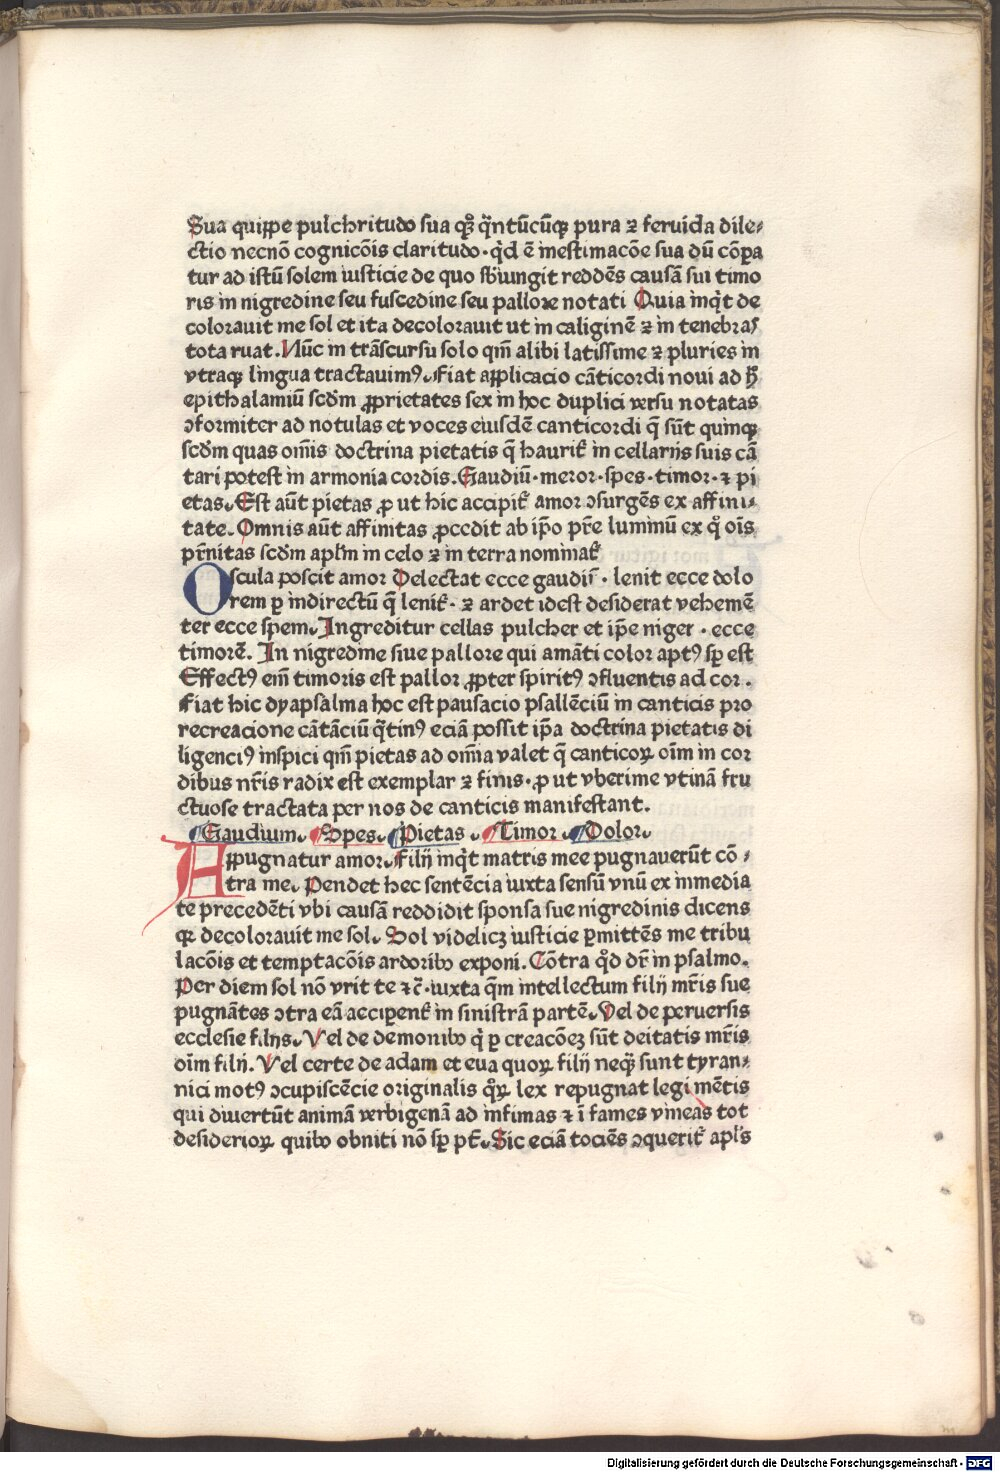 Sua quippe pulchritudo sua qꝫ q̈ntūcūqꝫ pura ⁊ feruida dile⸗
ctio necnō cognicōis claritudo · qͥd ē inestimacōe sua dū cōꝑa
tur ad istū solem iusticie de quo sb̄iungit reddēs causā sui timo
ris in nigredine seu fuscedine seu pallore notati Quia inqͥt de
colorauit me sol et ita decolorauit ut in caliginē ⁊ in tenebras
tota ruat. Nūc in trāscursu solo qm̄ alibi latissime ⁊ pluries in
vtraqꝫ lingua tractauimꝰ. Fiat applicacio cāticordi noui ad h̄
epithalamiū scd̄m ꝓprietates sex in hoc duplici versu notatas
ↄformiter ad notulas et voces eiusdē canticordi q̄ sūt quinqꝫ
scd̄m quas om̄is doctrina pietatis q̄ haurit᷑ in cellarijs suis cā
tari potest in armonia cordis. Gaudiū · meror · spes · timor · ⁊ pi
etas. Est aūt pietas ꝓ ut hic accipit᷑ amor ↄsurgēs ex affini⸗
tate. Omnis aūt affinitas ꝓcedit ab ip̄o pr̄e luminū ex qͦ oīs
pr̄nitas scd̄m apl̄m in celo ⁊ in terra nominat᷑
Oscula poscit amor Delectat ecce gaudiū · lenit ecce dolo
rem ꝑ indirectū q̄ lenit᷑ · ⁊ ardet idest desiderat vehemē
ter ecce spem. Ingreditur cellas pulcher et ip̄e niger · ecce
timorē. In nigredine siue pallore qui amāti color aptꝰ sꝑ est
Effectꝰ em̄ timoris est pallor ꝓpter spiritꝰ ↄfluentis ad cor .
Fiat hic dyapsalma hoc est pausacio psallēciū in canticis pro
recreacione cātāciū q̈tinꝰ eciā possit ip̄a doctrina pietatis di
ligenciꝰ inspici qm̄ pietas ad om̄ia valet q̄ canticoꝝ oīm in cor
dibus nr̄is radix est exemplar ⁊ finis · ꝓ ut vberime vtinā fru
ctuose tractata per nos de canticis manifestant.
Gaudium. Spes. Pietas Timor. Dolor.
Appugnatur amor. Filij inqͥt matris mee pugnauerūt cō⸗
tra me. Pendet hec sentēcia iuxta sensū vnū ex inmedia
te precedēti vbi causā reddidit sponsa sue nigredinis dicens
qꝛ decolorauit me sol. Sol videlicꝫ iusticie ꝑmittēs me tribu
lacōis et temptacōis ardoribꝰ exponi. Cōtra qͦd dr̄ in psalmo.
Per diem sol nō vrit te ⁊c̄ · iuxta qm̄ intellectum filij mr̄is sue
pugnātes ↄtra eā accipent᷑ in sinistrā partē. Vel de peruersis
ecclesie filijs. Vel de demonibꝰ qͥ ꝑ creacōeꝫ sūt deitatis mr̄is
oīm filij. Vel certe de adam et eua quoꝝ filij neqꝫ sunt tyran⸗
nici motꝰ ↄcupiscēcie originalis qͦꝝ lex repugnat legi mētis
qui diuertūt animā verbigenā ad infimas ⁊ ī fames vineas tot
desiderioꝝ quibꝰ obniti nō sꝑ pt̄. Sic eciā tociēs ↄquerit᷑ apl̄s
Digitalisierung gefördert durch die Deutsche Forschungsgemeinschaft - DFG